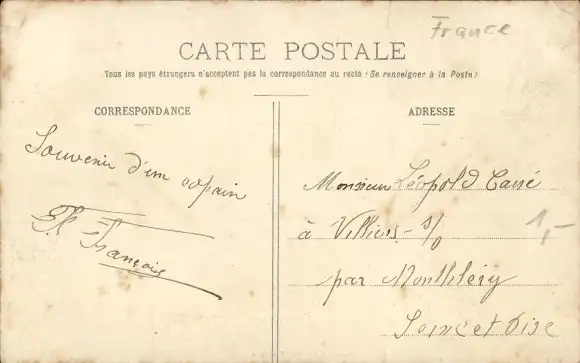 France
CARTE POSTALE
Tous les pays étrangers n'acceptent pas la correspondance au recto (Se renseigner à la Poste)
CORRESPONDANCE
Souvenir d'un copain
François
ADRESSE
Monsieur Léopold
à Villiers-s/o
par Montlhéry
Seine et Oise
1,-